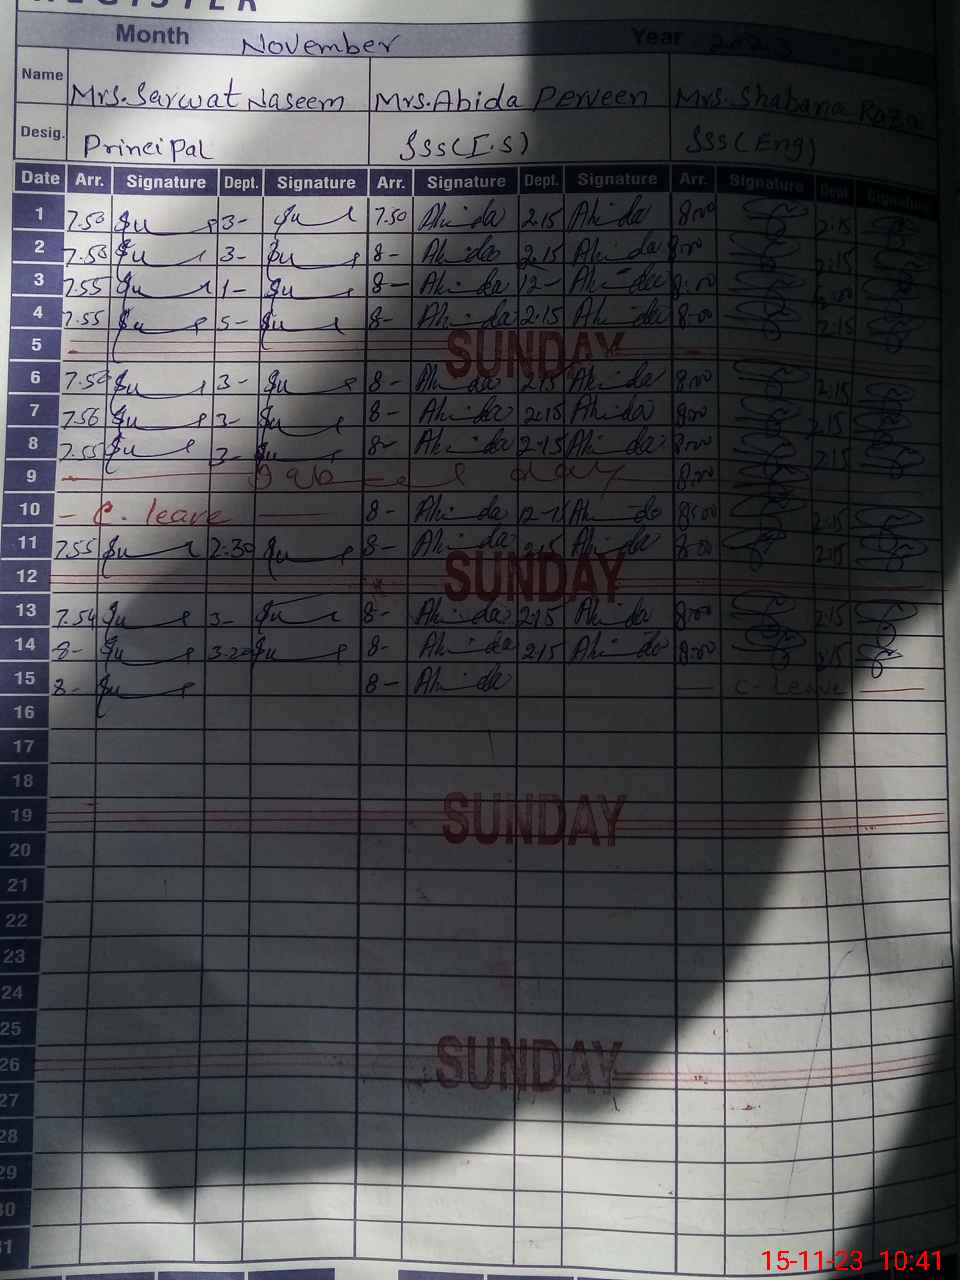 REGISTER
Month November Year 2023
Name Mrs. Sarwat Naseem Mrs. Abida Perveen Mrs. Shabana Raza
Desig. Principal SSS (I.S) SSS (Eng)
Date Arr. Signature Dept. Signature Arr. Signature Dept. Signature Arr. Signature Dept. Signature
1 7.50 3- 7.50 Abida 2.15 Abida 8:00 2:15
2 7.50 3- 8- Abida 2.15 Abida 8:00 2:15
3 7.55 1- 8- Abida 12- Abida 8:00
4 7.55 5- 8- Abida 2.15 Abida 8:00 2:15
5 SUNDAY
6 7.50 3- 8- Abida 2.15 Abida 8:00 2:15
7 7.56 3- 8- Abida 2.15 Abida 8:00 2:15
8 7.55 3- 8- Abida 2.15 Abida 8:00 2:15
9 Day 8:00
10 - C. leave 8- Abida Abida 8:00 2:15
11 7.55 2-30 8- Abida 2.15 Abida 8:00 2:15
12 SUNDAY
13 7.54 3- 8- Abida 2.15 Abida 8:00 2:15
14 8- 3-20 8- Abida 2.15 Abida 8:00 2:15
15 8- 8- Abida C. Leave
16
17
18
19 SUNDAY
20
21
22
23
24
25
26 SUNDAY
27
28
29
30
31
15-11-23 10:41